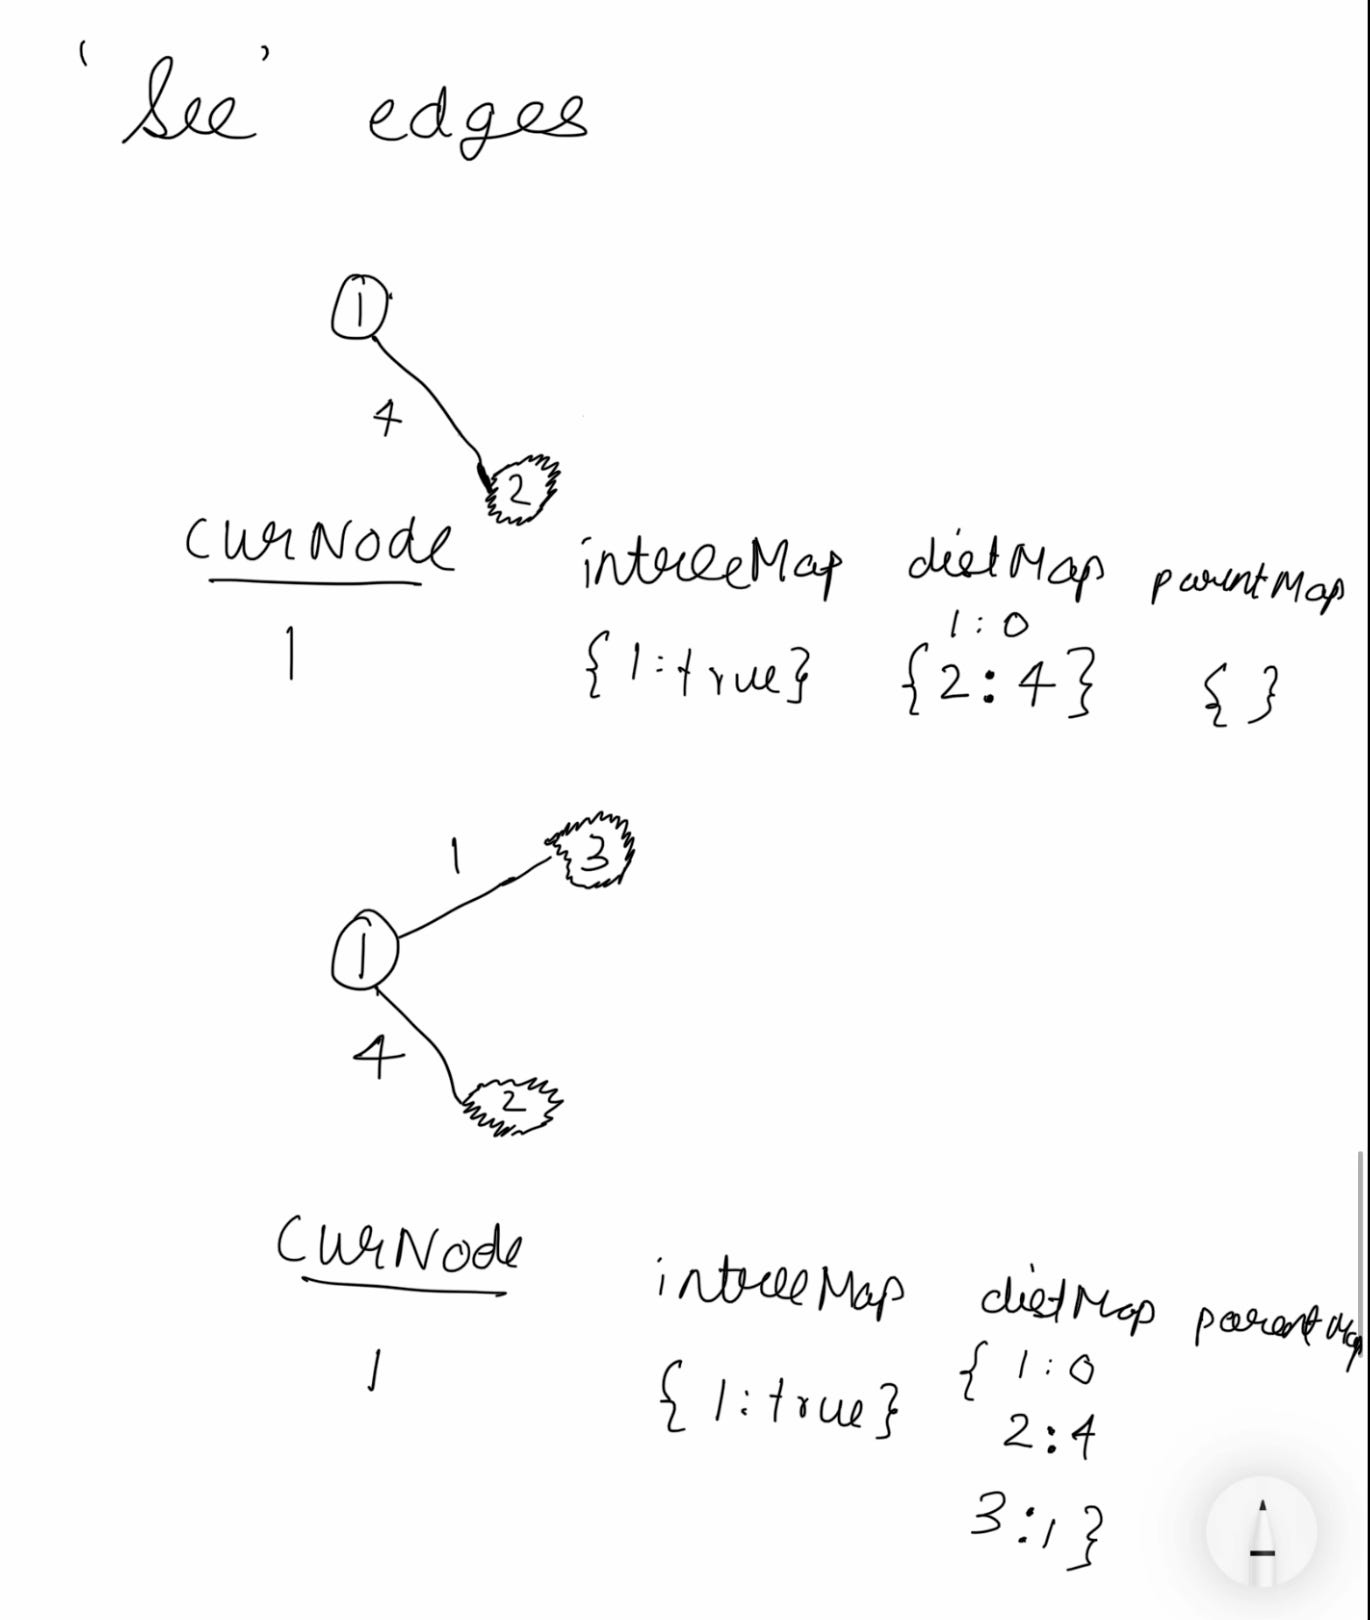 'See' edges
1
4
2
curNode intreeMap distMap parentMap
1:0
1 {1:true} {2:4} { }
1 3
1
4
2
CurNode intreeMap distMap parentMap
1 {1:true} { 1:0
2:4
3:1 }